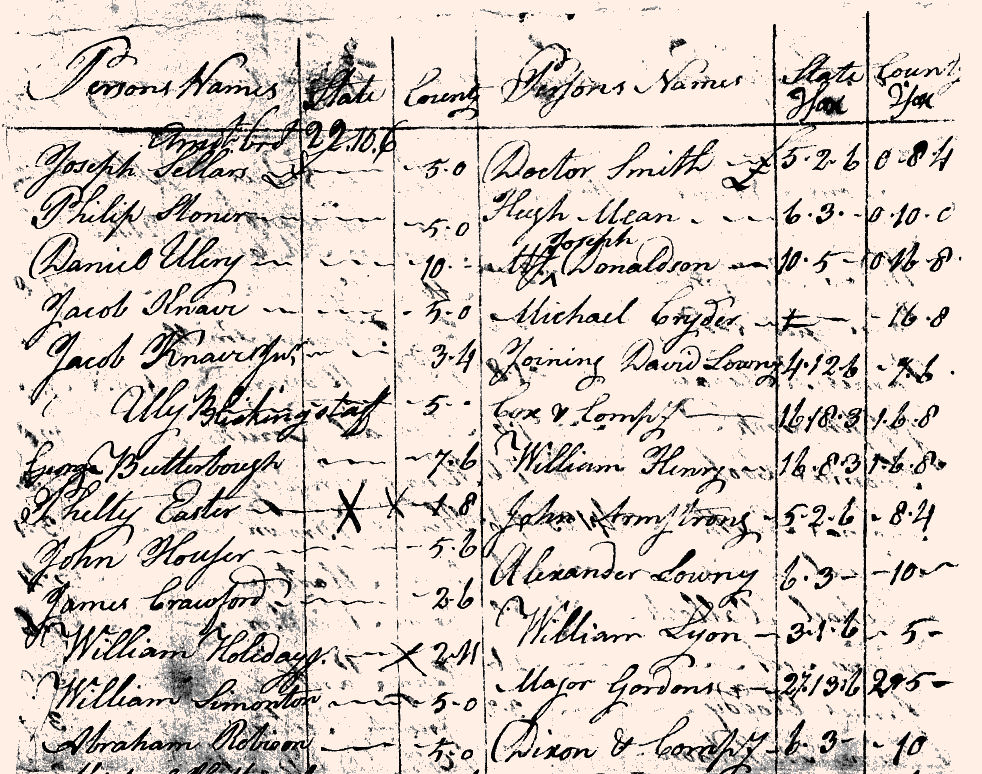 Persons Names State County
Amt brd 22.10.6
Joseph Sellars 5.0
Philip Stoner 5.0
Daniel Ulery 10
Jacob Knave 5.0
Jacob Knave Junr 3.4
Ully 5
George Butterbough 7.6
Easter X X 1.8
John Houser 5.6
James Crawford 2.6
William Holidays X 2.11
William Simonton 5.0
Abraham Robison 5.0
Persons Names State Tax County Tax
Doctor Smith 5.2.6 0.8.4
Hugh Mean 6.3 0.10.0
Joseph
Donaldson 10.5 0.16.8
Michael Cryder 16.8
Joining David Lowny 4.12.6 7.6
Cox & Compy 16.18.3 1.6.8
William Henry 16.8.3 1.6.8
John Armstrong 5.2.6 8.4
Alexander Lowny 6.3 10
William Lyon 3.1.6 5
Major Gordons 27.13.6
Dixon & Compy 6.3 10